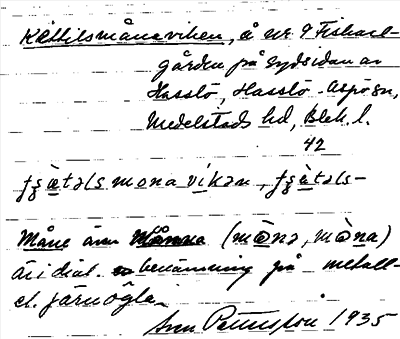 Kättilsmåneviken, å nr 9 Fiskare-
gården på sydsidan av
Hasslö, Hasslö-Aspö sn,
Medelstads hd, Blek. l.
42
måna vikən,
Måne även Månna (mònə, mòna)
är i dial. benämning på metall-
el. järnögla.
Sven Pettersson 1935